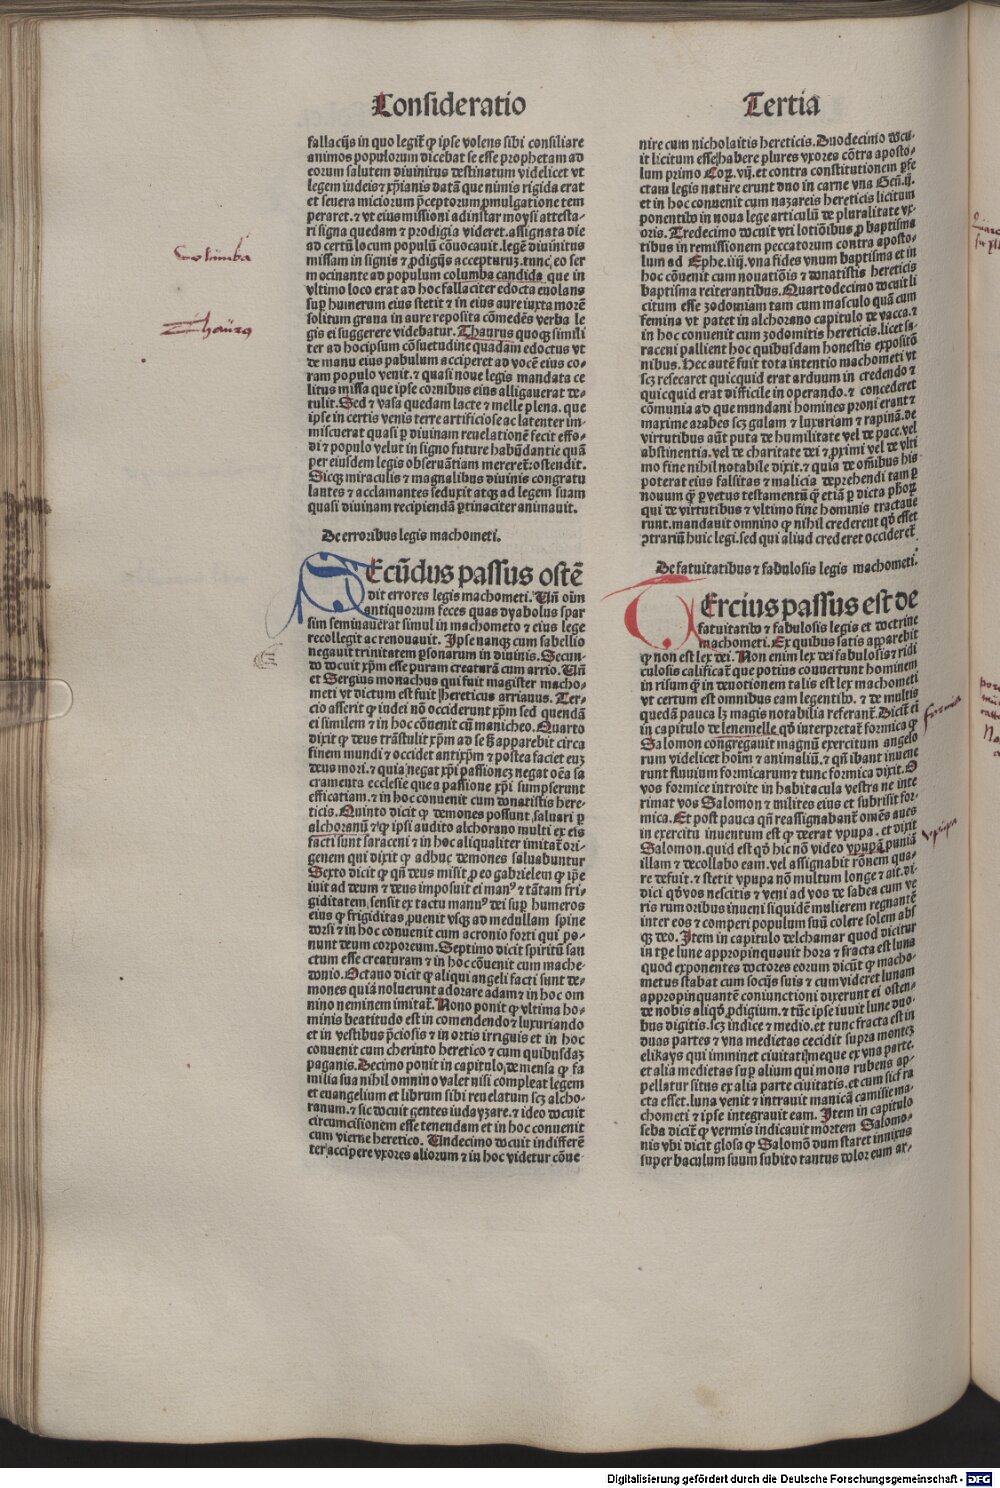 Consideratio
Tertia
fallacijs in quo legit͛ ꝙ ipse volens sibi consiliare
animos populorum dicebat se esse prophetam ad
eorum salutem diuinitus destinatum videlicet vt
legem iudeis ⁊ xp̄ianis datā que nimis rigida erat
et seuera miciorum p̄ceptorum ꝓmulgatione tem
peraret. ⁊ vt eius missioni ad instar moysi attesta-
ri signa quedam ⁊ prodigia videret. assignata die
ad certū locum populū cōuocauit. legē diuinitus
missam in signis ⁊ ꝓdigijs accepturuꝫ. tunc eo ser
mocinante ad populum columba candida que in
vltimo loco erat ad hoc fallaciter edocta euolans
suꝑ humerum eius stetit ⁊ in eius aure iuxta morē
solitum grana in aure reposita cōmedēs verba le
gis ei suggerere videbatur. Thaurus quoqꝫ simili
ter ad hoc ipsum cōsuetudine quadam edoctus vt
de manu eius pabulum acciperet ad vocē eius co-
ram populo venit. ⁊ quasi noue legis mandata ce
litus missa que ipse cornibus eius alligauerat de-
tulit. Sed ⁊ vasa quedam lacte ⁊ melle plena. que
ipse in certis venis terre artificiose ac latenter im-
miscuerat quasi ꝑ diuinam reuelationē fecit effo-
di ⁊ populo velut in signo future habūdantie quā
per eiusdem legis obseruātiam mereret͛ ostendit.
Sicqꝫ miraculis ⁊ magnalibus diuinis congratu
lantes ⁊ acclamantes seduxit atqꝫ ad legem suam
quasi diuinam recipiendā ꝑtinaciter animauit.
De erroribus legis machometi.
SEcūdus passus ostē
dit errores legis machometi. Uñ oīm
antiquorum feces quas dyabolus spar
sim seminauerat simul in machometo ⁊ eius lege
recollegit ac renouauit. Ipse nanqꝫ cum sabellio
negauit trinitatem ꝑsonarum in diuinis. Secun-
do docuit xp̄m esse puram creaturā cum arrio. Uñ
et Sergius monachus qui fuit magister macho-
meti vt dictum est fuit hereticus arrianus. Ter-
cio asserit ꝙ iudei nō occiderunt xp̄m sed quendā
ei similem ⁊ in hoc cōuenit cū manicheo. Quarto
dixit ꝙ deus trāstulit xp̄m ad se sꝫ apparebit circa
finem mundi ⁊ occidet antixp̄m ⁊ postea faciet euꝫ
deus mori. ⁊ quia negat xp̄i passioneꝫ negat oēa sa
cramenta ecclesie que a passione xp̄i sumpserunt
efficatiam. ⁊ in hoc conuenit cum donatistis here-
ticis. Quinto dicit ꝙ demones possunt saluari ꝑ
alchoranū ⁊ ꝙ ipsi audito alchorano multi ex eis
facti sunt saraceni ⁊ in hoc aliqualiter imitat͛ ori-
genem qui dixit ꝙ adhuc demones saluabuntur
Sexto dicit ꝙ qñ deus misit ꝓ eo gabrielem ꝙ ip̄e
iuit ad deum ⁊ deus imposuit ei manꝰ ⁊ tātam fri-
giditatem sensit ex tactu manuꝰ dei suꝑ humeros
eius ꝙ frigiditas ꝓuenit vsqꝫ ad medullam spine
dorsi ⁊ in hoc conuenit cum acronio forti qui po-
nunt deum corporeum. Septimo dicit spiritū san
ctum esse creaturam ⁊ in hoc cōuenit cum mache-
donio. Octauo dicit ꝙ aliqui angeli facti sunt de-
mones quia noluerunt adorare adam ⁊ in hoc om
nino neminem imitat͛. Nono ponit ꝙ vltima ho-
minis beatitudo est in comendendo ⁊ luxuriando
et in vestibus p̄ciosis ⁊ in ortis irriguis et in hoc
conuenit cum cherinto heretico ⁊ cum quibusdaꝫ
paganis. Decimo ponit in capitulo de mensa ꝙ fa
milia sua nihil omnino valet nisi compleat legem
et euangelium et librum sibi reuelatum scꝫ alcho-
ranum. ⁊ sic docuit gentes iudayzare. ⁊ ideo docuit
circumcisionem esse tenendam et in hoc conuenit
cum vierne heretico. Undecimo docuit indifferē
ter accipere vxores aliorum ⁊ in hoc videtur cōue
nire cum nicholaitis hereticis. Duodecimo docu-
it licitum esse habere plures vxores cōtra aposto-
lum primo Coꝝ. vij. et contra constitutionem ꝑfe
ctam legis nature erunt duo in carne vna Geñ. ij.
et in hoc conuenit cum nazareis hereticis licitum
ponentibꝰ in noua lege articulū de pluralitate vx-
oris. Tredecimo docuit vti lotiōibus ꝓ baptisma
tibus in remissionem peccatorum contra aposto-
lum ad Ephe. iiij. vna fides vnum baptisma et in
hoc cōuenit cum nouatiōis ⁊ donatistis hereticis
baptisma reiterantibus. Quartodecimo docuit li
citum esse zodomiam tam cum masculo quā cum
femina vt patet in alchorano capitulo de vacca. ⁊
in hoc conuenit cum zodomitis hereticis. licet sa-
raceni pallient hoc quibusdam honestis expositō
nibus. Hec autē fuit tota intentio machometi vt
scꝫ resecaret quicquid erat arduum in credendo ⁊
quicquid erat difficile in operando. ⁊ concederet
cōmunia ad que mundani homines proni erant ⁊
maxime arabes scꝫ gulam ⁊ luxuriam ⁊ rapinā. de
virtutibus aūt puta de humilitate vel de pace. vel
abstinentia. vel de charitate dei ⁊ ꝓximi vel de vlti
mo fine nihil notabile dixit. ⁊ quia de oībus his
poterat eius falsitas ⁊ malicia deprehendi tam ꝑ
nouum ꝙ̄ ꝑ vetus testamentū ꝙ̄ etiā ꝑ dicta ph̄oꝝ
qui de virtutibus ⁊ vltimo fine hominis tractaue
runt. mandauit omnino ꝙ nihil crederent qd̄ esset
ꝯtrariū huic legi. sed qui aliud crederet occideret͛
De fatuitatibus ⁊ fabulosis legis machometi.
TErcius passus est de
fatuitatibꝰ ⁊ fabulosis legis et doctrine
machometi. Ex quibus satis apparebit
ꝙ non est lex dei. Non enim lex dei fabulosis ⁊ ridi
culosis calificat͛ que potius conuertunt hominem
in risum ꝙ̄ in deuotionem talis est lex machometi
vt certum est omnibus eam legentibꝰ. ⁊ de multis
quedā pauca lꝫ magis notabilia referant͛. Dicit͛ ei
in capitulo de lenemelle qd̄ interpretat͛ formica ꝙ
Salomon congregauit magnū exercitum angelo
rum videlicet hoīm ⁊ animaliū. ⁊ qñ ibant inuene
runt fluuium formicarum ⁊ tunc formica dixit. O
vos formice introite in habitacula vestra ne inte
rimat vos Salomon ⁊ milites eius et subrisit for-
mica. Et post pauca qñ reassignabant͛ omēs aues
in exercitu inuentum est ꝙ deerat vpupa. et dixit
Salomon. quid est qd̄ hic nō video vpupā puniā
illam ⁊ decollabo eam. vel assignabit rōnem qua-
re defuit. ⁊ stetit vpupa nō multum longe ⁊ ait. di-
dici qd̄ vos nescitis ⁊ veni ad vos de sabea cum ve
ris rumoribus inueni siquidē mulierem regnantē
inter eos ⁊ comperi populum suū colere solem abs
qꝫ deo. Item in capitulo delchamar quod dicitur
in tp̄e lune appropinquauit hora ⁊ fracta est luna
quod exponentes doctores eorum dicūt ꝙ macho-
metus stabat cum socijs suis ⁊ cum videret lunam
appropinquantē coniunctioni dixerunt ei osten-
de nobis aliqd̄ ꝓdigium. ⁊ tūc ipse iuuit lune duo-
bus digitis. scꝫ indice ⁊ medio. et tunc fracta est in
duas partes ⁊ vna medietas cecidit supra monteꝫ
elikays qui imminet ciuitati meque ex vna parte.
et alia medietas suꝑ alium qui mons rubens ap-
pellatur situs ex alia parte ciuitatis. et cum sic fra
cta esset. luna venit ⁊ intrauit manicā camisie ma-
chometi ⁊ ipse integrauit eam. Item in capitulo
seba dicit͛ ꝙ vermis indicauit mortem Salomo-
nis vbi dicit glosa ꝙ Salomō dum staret innixus
super baculum suum subito tantus dolor eum ar-
Columba
Thaurꝰ
formica
vpupa
Digitalisierung gefördert durch die Deutsche Forschungsgemeinschaft - DFG